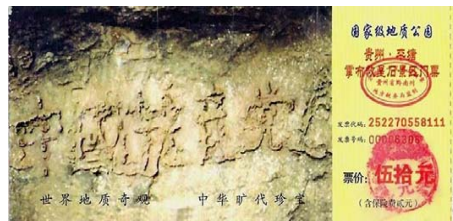 中國共产党
世界地质奇观 中华旷代珍宝
国家级地质公园
贵州·平塘
掌布救星石景区门票
发票代码: 252270558111
发票号码: 00006306
票价: 伍拾元
(含保险费贰元)